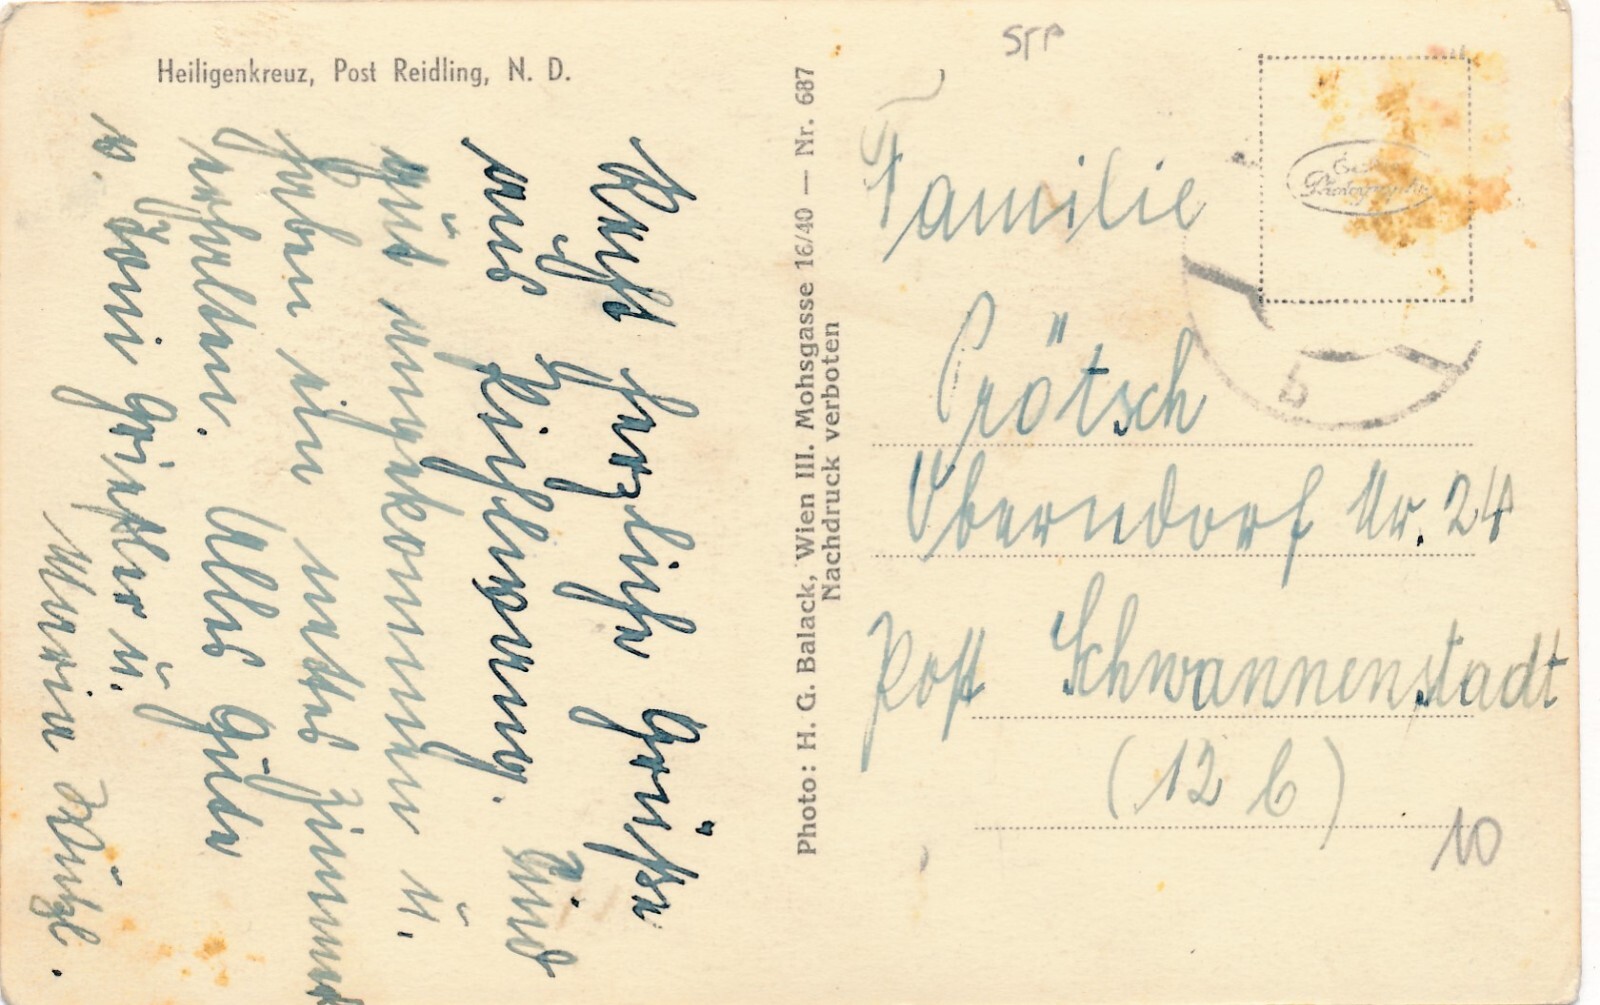 Heiligenkreuz, Post Reidling, N. D.
Recht herzliche Grüße
aus Kirchberg. Sind
gut angekommen u.
haben ein nettes Zimmer
erhalten. Alles Gute
v. Toni u.
Maria
Photo: H. G. Balack, Wien III. Mohsgasse 16/40 — Nr. 687
Nachdruck verboten
Familie
Prötsch
Oberndorf Nr. 24
Post Schwannenstadt
(12 b)
10